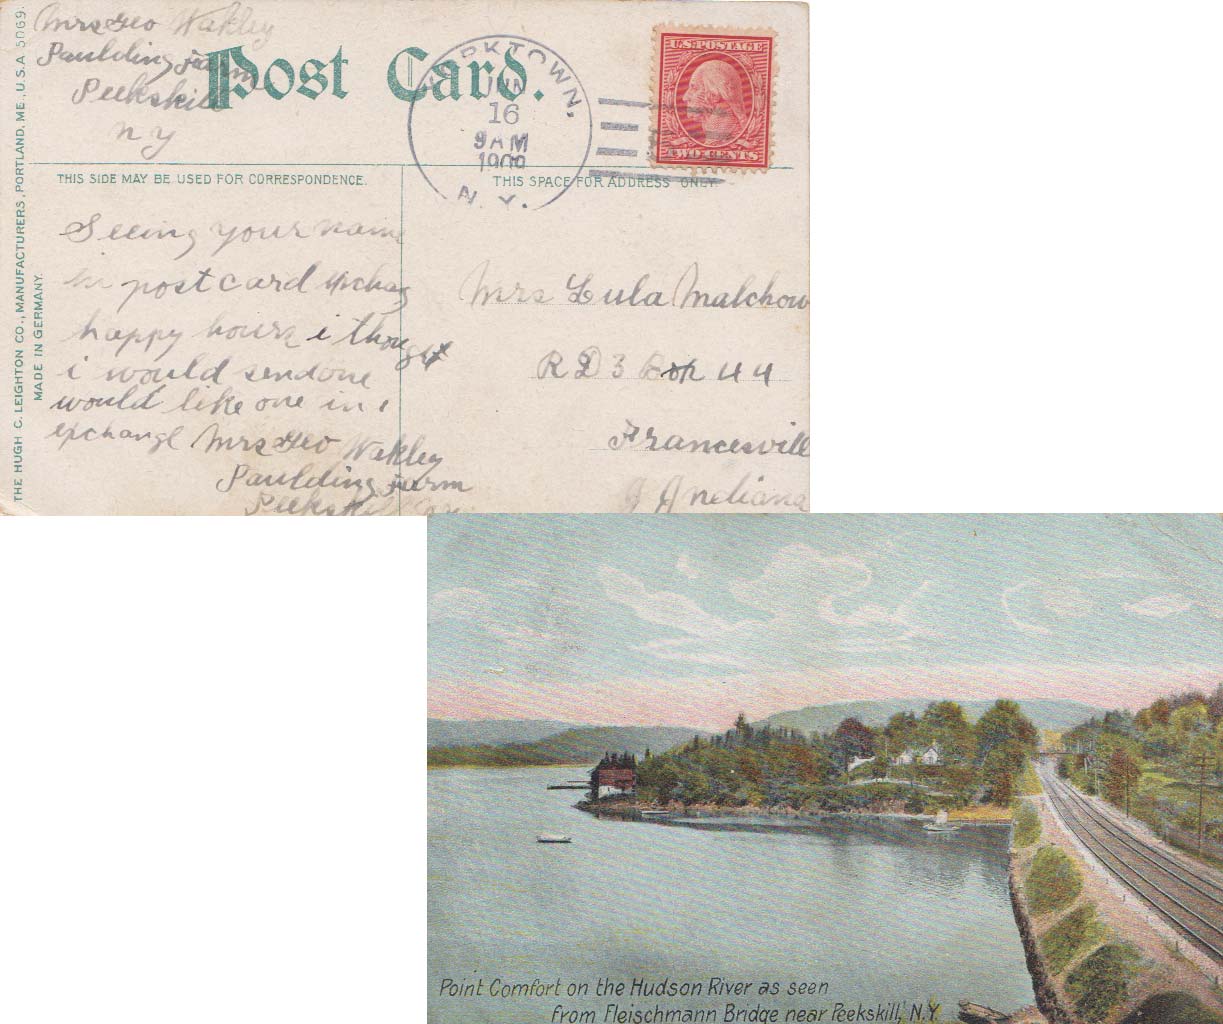 Mrs Geo Wakley
Paulding Farm
Peekskill
N Y
Post Card.
YORKTOWN,
JUN
16
9 AM
1909
N. Y.
U.S. POSTAGE
TWO CENTS
THE HUGH C. LEIGHTON CO., MANUFACTURERS, PORTLAND, ME., U.S.A 5069.
MADE IN GERMANY.
THIS SIDE MAY BE USED FOR CORRESPONDENCE.
THIS SPACE FOR ADDRESS ONLY
Seeing your name
in postcard exchang
happy hours i thought
i would send one
would like one in
exchange Mrs Geo Wakley
Paulding Farm
Peekskill
Mrs Lula Malchow
R D 3 Box 44
Francesvill
Indiana
Point Comfort on the Hudson River as seen
from Fleischmann Bridge near Peekskill, N.Y.